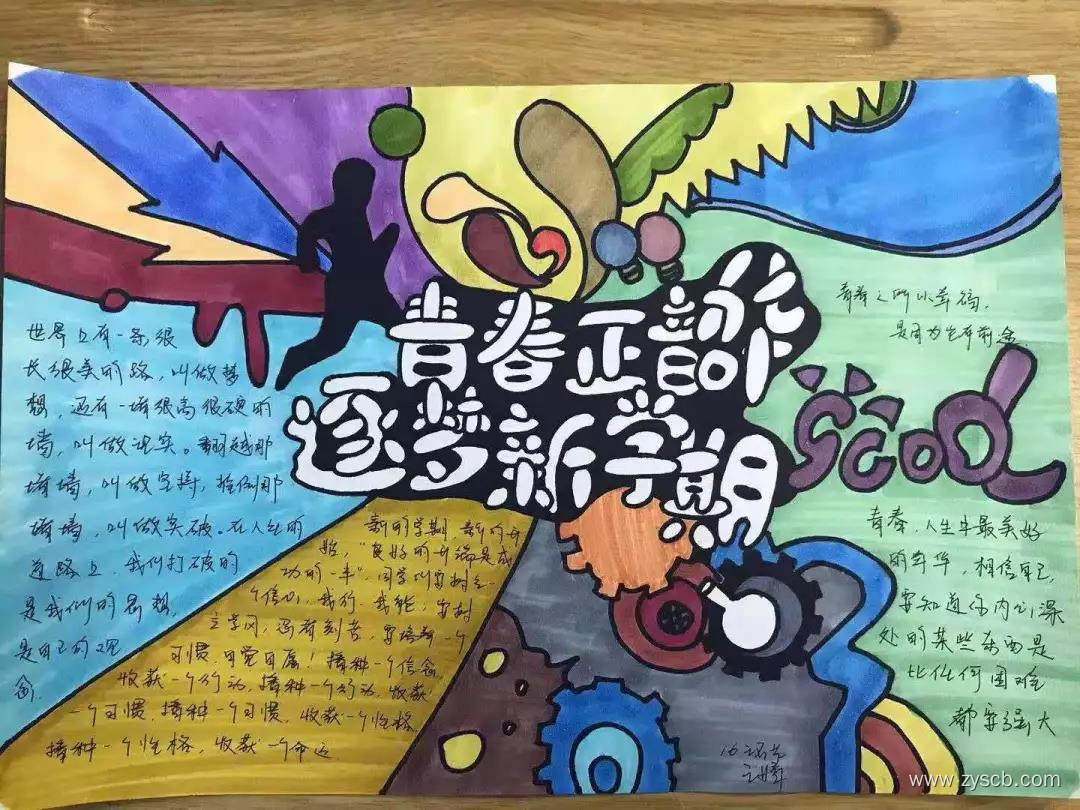 青春正韶华
逐梦新学期
世界上有一条很
长很美的路,叫做梦
想,还有一堵很高很硬的
墙,叫做现实。翻越那
堵墙,叫做坚持,推倒那
堵墙,叫做突破。在人生的
道路上,我们打破的
是我们的
是自己的观
念
新的学期 新的开
始,“良好的开端是成
功的一半”,同学们要树立一
个信心,我行,我能,要树
立学风,没有刻苦,要培养一个
习惯,自觉自属!播种一个信念
收获一个行动,播种一个行动,收获
一个习惯,播种一个习惯,收获一个性格,
播种一个性格,收获一个命运
青春之所以幸福,
是因为它有前途
Scool
青春,人生中最美好
的年华,相信自己,
要知道你内心深
处的某些东西是
比任何困难
都要强大
www.zyscb.com